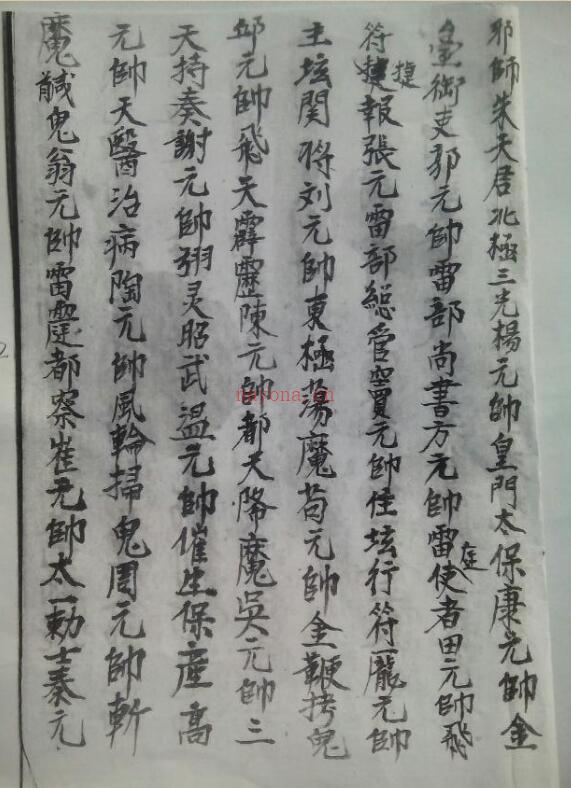 邪師朱天君北極三光楊元帥皇門太保康元帥金
臺衙吏郭元帥雷部尚書方元帥雷庭使者田元帥飛
符捷報張元雷部総管竇元帥住坛行符龐元帥
主坛関将刘元帥東極蕩魔苟元帥金鞭拷鬼
邱元帥飛天霹靂陳元帥都天降魔吳元帥三
天持奏謝元帥翊灵昭武温元帥催生保産高
元帥天醫治病陶元帥風輪掃鬼周元帥斬
魔馘鬼翁元帥雷霆都察崔元帥太一勅士秦元
nasona.cn